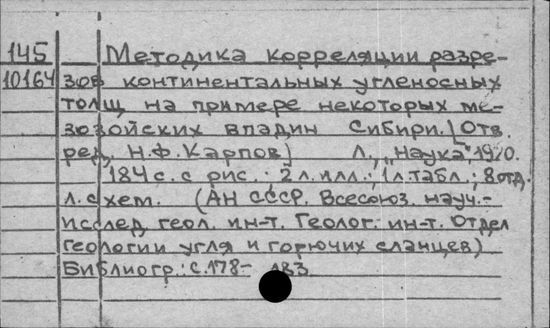 145 Методика корреляции разре-
10164 зов континентальных угленосных
толщ на примере некоторых ме-
зозойских впадин Сибири. (Отв.
ред. Н.Ф. Карпов) Л., "Наука", 1970.
184 с. с рис.; 2 л. илл.; 1 л. табл.; 8 отд.
л. схем. (АН СССР. Всесоюз. науч.-
исслед. геол. ин-т. Геолог. ин-т. Отдел
геологии угля и горючих сланцев)
Библиогр.: с. 178-183